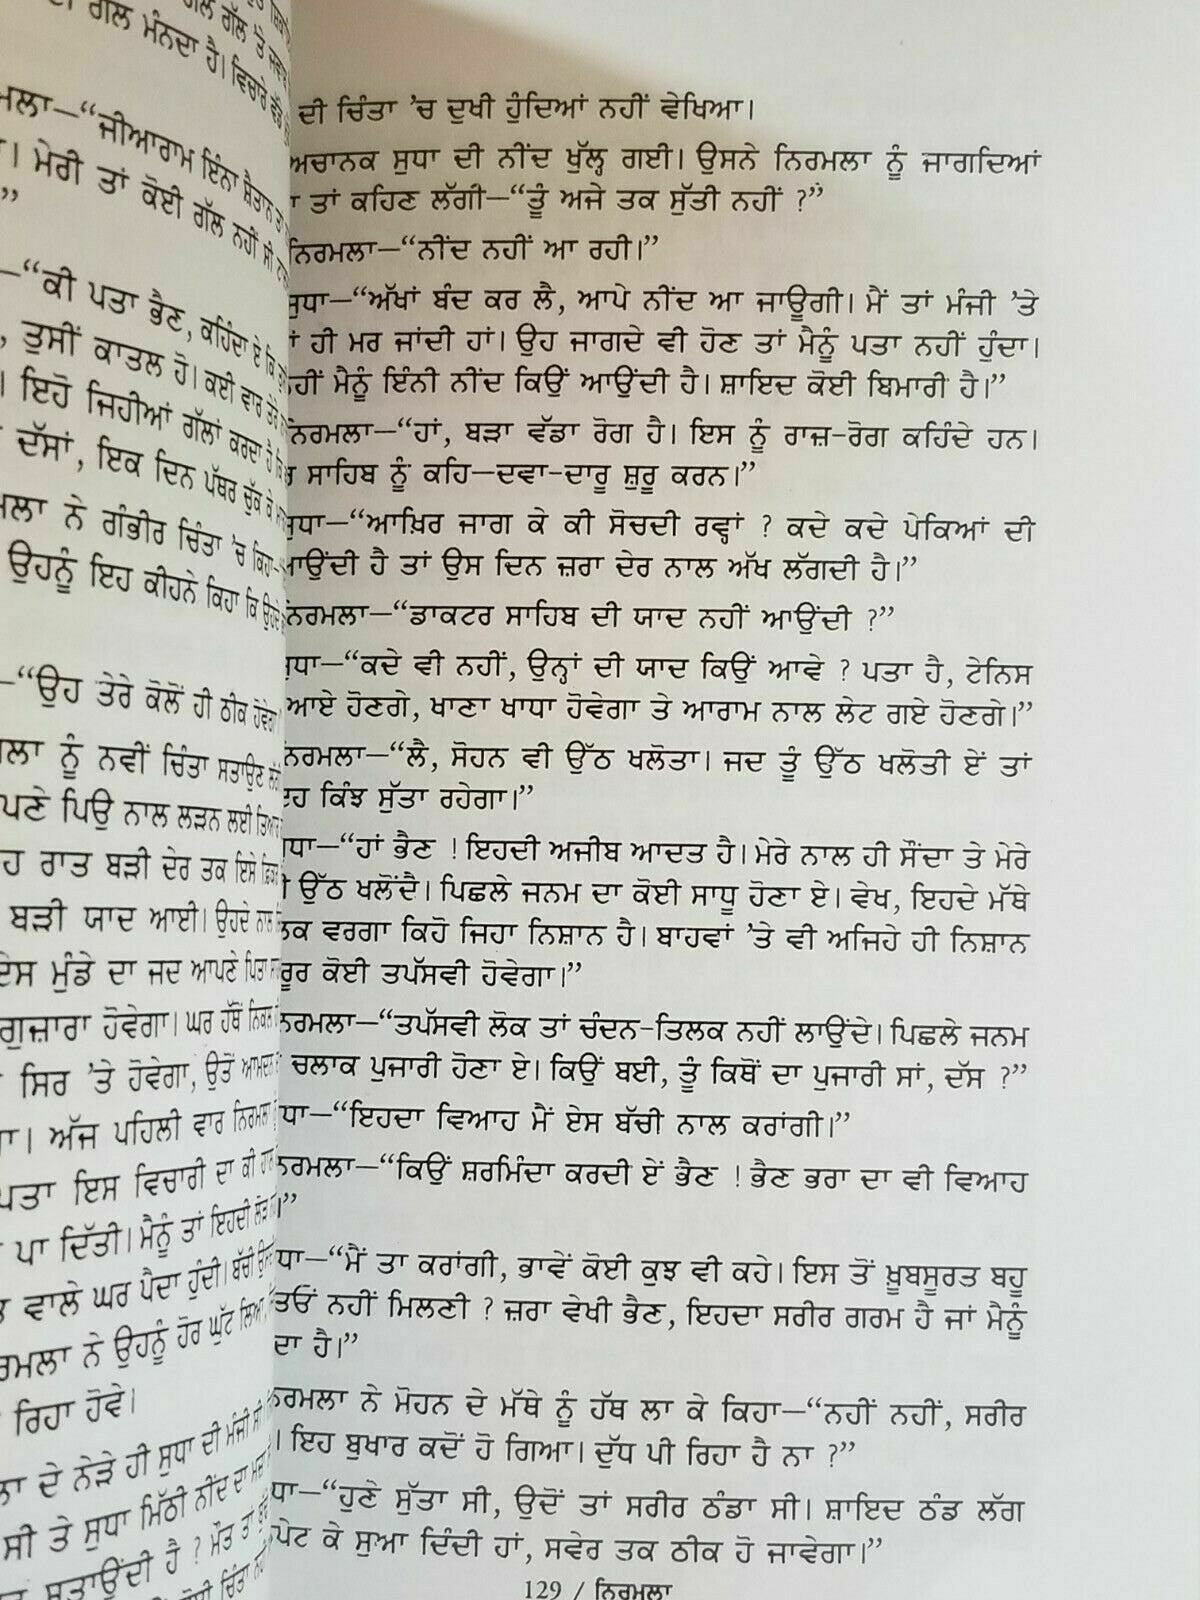 ਗੱਲ ਮੰਨਦਾ ਹੈ। ਵਿਚਾਰੇ
“ਜੀਆਰਾਮ ਇੰਨਾ ਸ਼ੈਤਾਨ ਤਾਂ
ਮੇਰੀ ਤਾਂ ਕੋਈ ਗੱਲ ਨਹੀਂ ਸੀ
”
—“ਕੀ ਪਤਾ ਭੈਣ, ਕਹਿੰਦਾ ਏ ਕਿ
, ਤੁਸੀਂ ਕਾਤਲ ਹੋ। ਕਈ ਵਾਰ ਤੇਰੇ
। ਇਹੋ ਜਿਹੀਆਂ ਗੱਲਾਂ ਕਰਦਾ ਹੈ ਕਿ
ਦੱਸਾਂ, ਇਕ ਦਿਨ ਪੱਥਰ ਚੁੱਕ ਕੇ
ਨੇ ਗੰਭੀਰ ਚਿੰਤਾ ’ਚ ਕਿਹਾ—
ਉਹਨੂੰ ਇਹ ਕੀਹਨੇ ਕਿਹਾ ਕਿ ਉਹਦੇ
—“ਉਹ ਤੇਰੇ ਕੋਲੋਂ ਹੀ ਠੀਕ ਹੋਵੇਗਾ
ਨੂੰ ਨਵੀਂ ਚਿੰਤਾ ਸਤਾਉਣ
ਪਿਉ ਨਾਲ ਲੜਨ ਲਈ
ਰਾਤ ਬੜੀ ਦੇਰ ਤਕ ਇਸੇ
ਬੜੀ ਯਾਦ ਆਈ। ਉਹਦੇ ਨਾਲ
ਮੁੰਡੇ ਦਾ ਜਦ ਆਪਣੇ ਪਿਤਾ
ਗੁਜ਼ਾਰਾ ਹੋਵੇਗਾ। ਘਰ ਹੱਥੋਂ ਨਿਕਲ
ਸਿਰ ’ਤੇ ਹੋਵੇਗਾ, ਉਤੋਂ ਆਮਦਨ
। ਅੱਜ ਪਹਿਲੀ ਵਾਰ ਨਿਰਮਲਾ
ਪਤਾ ਇਸ ਵਿਚਾਰੀ ਦਾ ਕੀ
ਪਾ ਦਿੱਤੀ। ਮੈਨੂੰ ਤਾਂ ਇਹਦੀ ਲੋੜ
ਵਾਲੇ ਘਰ ਪੈਦਾ ਹੁੰਦੀ। ਬੱਚੀ
ਨੇ ਉਹਨੂੰ ਹੋਰ ਘੁੱਟ ਲਿਆ,
ਰਿਹਾ ਹੋਵੇ।
ਦੇ ਨੇੜੇ ਹੀ ਸੁਧਾ ਦੀ ਮੰਜੀ ਸੀ
ਸੀ ਤੇ ਸੁਧਾ ਮਿੱਠੀ ਨੀਂਦ ਦਾ
ਸਤਾਉਂਦੀ ਹੈ ? ਮੌਤ ਤਾਂ
ਦੀ ਚਿੰਤਾ ’ਚ ਦੁਖੀ ਹੁੰਦਿਆਂ ਨਹੀਂ ਵੇਖਿਆ।
ਅਚਾਨਕ ਸੁਧਾ ਦੀ ਨੀਂਦ ਖੁੱਲ੍ਹ ਗਈ। ਉਸਨੇ ਨਿਰਮਲਾ ਨੂੰ ਜਾਗਦਿਆਂ
ਤਾਂ ਕਹਿਣ ਲੱਗੀ—“ਤੂੰ ਅਜੇ ਤਕ ਸੁੱਤੀ ਨਹੀਂ ?”
ਨਿਰਮਲਾ—“ਨੀਂਦ ਨਹੀਂ ਆ ਰਹੀ।”
ਸੁਧਾ—“ਅੱਖਾਂ ਬੰਦ ਕਰ ਲੈ, ਆਪੇ ਨੀਂਦ ਆ ਜਾਊਗੀ। ਮੈਂ ਤਾਂ ਮੰਜੀ ’ਤੇ
ਹੀ ਮਰ ਜਾਂਦੀ ਹਾਂ। ਉਹ ਜਾਗਦੇ ਵੀ ਹੋਣ ਤਾਂ ਮੈਨੂੰ ਪਤਾ ਨਹੀਂ ਹੁੰਦਾ।
ਮੈਨੂੰ ਇੰਨੀ ਨੀਂਦ ਕਿਉਂ ਆਉਂਦੀ ਹੈ। ਸ਼ਾਇਦ ਕੋਈ ਬਿਮਾਰੀ ਹੈ।”
ਨਿਰਮਲਾ—“ਹਾਂ, ਬੜਾ ਵੱਡਾ ਰੋਗ ਹੈ। ਇਸ ਨੂੰ ਰਾਜ਼-ਰੋਗ ਕਹਿੰਦੇ ਹਨ।
ਸਾਹਿਬ ਨੂੰ ਕਹਿ—ਦਵਾ-ਦਾਰੂ ਸ਼ੁਰੂ ਕਰਨ।”
ਸੁਧਾ—“ਆਖ਼ਿਰ ਜਾਗ ਕੇ ਕੀ ਸੋਚਦੀ ਰਵ੍ਹਾਂ ? ਕਦੇ ਕਦੇ ਪੇਕਿਆਂ ਦੀ
ਆਉਂਦੀ ਹੈ ਤਾਂ ਉਸ ਦਿਨ ਜ਼ਰਾ ਦੇਰ ਨਾਲ ਅੱਖ ਲੱਗਦੀ ਹੈ।”
ਨਿਰਮਲਾ—“ਡਾਕਟਰ ਸਾਹਿਬ ਦੀ ਯਾਦ ਨਹੀਂ ਆਉਂਦੀ ?”
ਸੁਧਾ—“ਕਦੇ ਵੀ ਨਹੀਂ, ਉਨ੍ਹਾਂ ਦੀ ਯਾਦ ਕਿਉਂ ਆਵੇ ? ਪਤਾ ਹੈ, ਟੇਨਿਸ
ਆਏ ਹੋਣਗੇ, ਖਾਣਾ ਖਾਧਾ ਹੋਵੇਗਾ ਤੇ ਆਰਾਮ ਨਾਲ ਲੇਟ ਗਏ ਹੋਣਗੇ।”
ਨਿਰਮਲਾ—“ਲੈ, ਸੋਹਨ ਵੀ ਉੱਠ ਖਲੋਤਾ। ਜਦ ਤੂੰ ਉੱਠ ਖਲੋਤੀ ਏਂ ਤਾਂ
ਕਿੰਝ ਸੁੱਤਾ ਰਹੇਗਾ।”
ਧਾ—“ਹਾਂ ਭੈਣ ! ਇਹਦੀ ਅਜੀਬ ਆਦਤ ਹੈ। ਮੇਰੇ ਨਾਲ ਹੀ ਸੌਂਦਾ ਤੇ ਮੇਰੇ
ਉੱਠ ਖਲੋਂਦੈ। ਪਿਛਲੇ ਜਨਮ ਦਾ ਕੋਈ ਸਾਧੂ ਹੋਣਾ ਏ। ਵੇਖ, ਇਹਦੇ ਮੱਥੇ
ਲਕ ਵਰਗਾ ਕਿਹੋ ਜਿਹਾ ਨਿਸ਼ਾਨ ਹੈ। ਬਾਹਵਾਂ ’ਤੇ ਵੀ ਅਜਿਹੇ ਹੀ ਨਿਸ਼ਾਨ
ਰੂਰ ਕੋਈ ਤਪੱਸਵੀ ਹੋਵੇਗਾ।”
ਨਿਰਮਲਾ—“ਤਪੱਸਵੀ ਲੋਕ ਤਾਂ ਚੰਦਨ-ਤਿਲਕ ਨਹੀਂ ਲਾਉਂਦੇ। ਪਿਛਲੇ ਜਨਮ
ਚਲਾਕ ਪੁਜਾਰੀ ਹੋਣਾ ਏ। ਕਿਉਂ ਬਈ, ਤੂੰ ਕਿਥੋਂ ਦਾ ਪੁਜਾਰੀ ਸਾਂ, ਦੱਸ ?”
ਧਾ—“ਇਹਦਾ ਵਿਆਹ ਮੈਂ ਏਸ ਬੱਚੀ ਨਾਲ ਕਰਾਂਗੀ।”
ਨਿਰਮਲਾ—“ਕਿਉਂ ਸ਼ਰਮਿੰਦਾ ਕਰਦੀ ਏਂ ਭੈਣ ! ਭੈਣ ਭਰਾ ਦਾ ਵੀ ਵਿਆਹ
”
ਧਾ—“ਮੈਂ ਤਾ ਕਰਾਂਗੀ, ਭਾਵੇਂ ਕੋਈ ਕੁਝ ਵੀ ਕਹੇ। ਇਸ ਤੋਂ ਖ਼ੂਬਸੂਰਤ ਬਹੂ
ਤਓਂ ਨਹੀਂ ਮਿਲਣੀ ? ਜ਼ਰਾ ਵੇਖੀ ਭੈਣ, ਇਹਦਾ ਸਰੀਰ ਗਰਮ ਹੈ ਜਾਂ ਮੈਨੂੰ
ਦਾ ਹੈ।”
ਨਿਰਮਲਾ ਨੇ ਮੋਹਨ ਦੇ ਮੱਥੇ ਨੂੰ ਹੱਥ ਲਾ ਕੇ ਕਿਹਾ—“ਨਹੀਂ ਨਹੀਂ, ਸਰੀਰ
। ਇਹ ਬੁਖਾਰ ਕਦੋਂ ਹੋ ਗਿਆ। ਦੁੱਧ ਪੀ ਰਿਹਾ ਹੈ ਨਾ ?”
ਧਾ—“ਹੁਣੇ ਸੁੱਤਾ ਸੀ, ਉਦੋਂ ਤਾਂ ਸਰੀਰ ਠੰਡਾ ਸੀ। ਸ਼ਾਇਦ ਠੰਡ ਲੱਗ
ਪੇਟ ਕੇ ਸੁਆ ਦਿੰਦੀ ਹਾਂ, ਸਵੇਰ ਤਕ ਠੀਕ ਹੋ ਜਾਵੇਗਾ।”
129 / ਨਿਰਮਲਾ